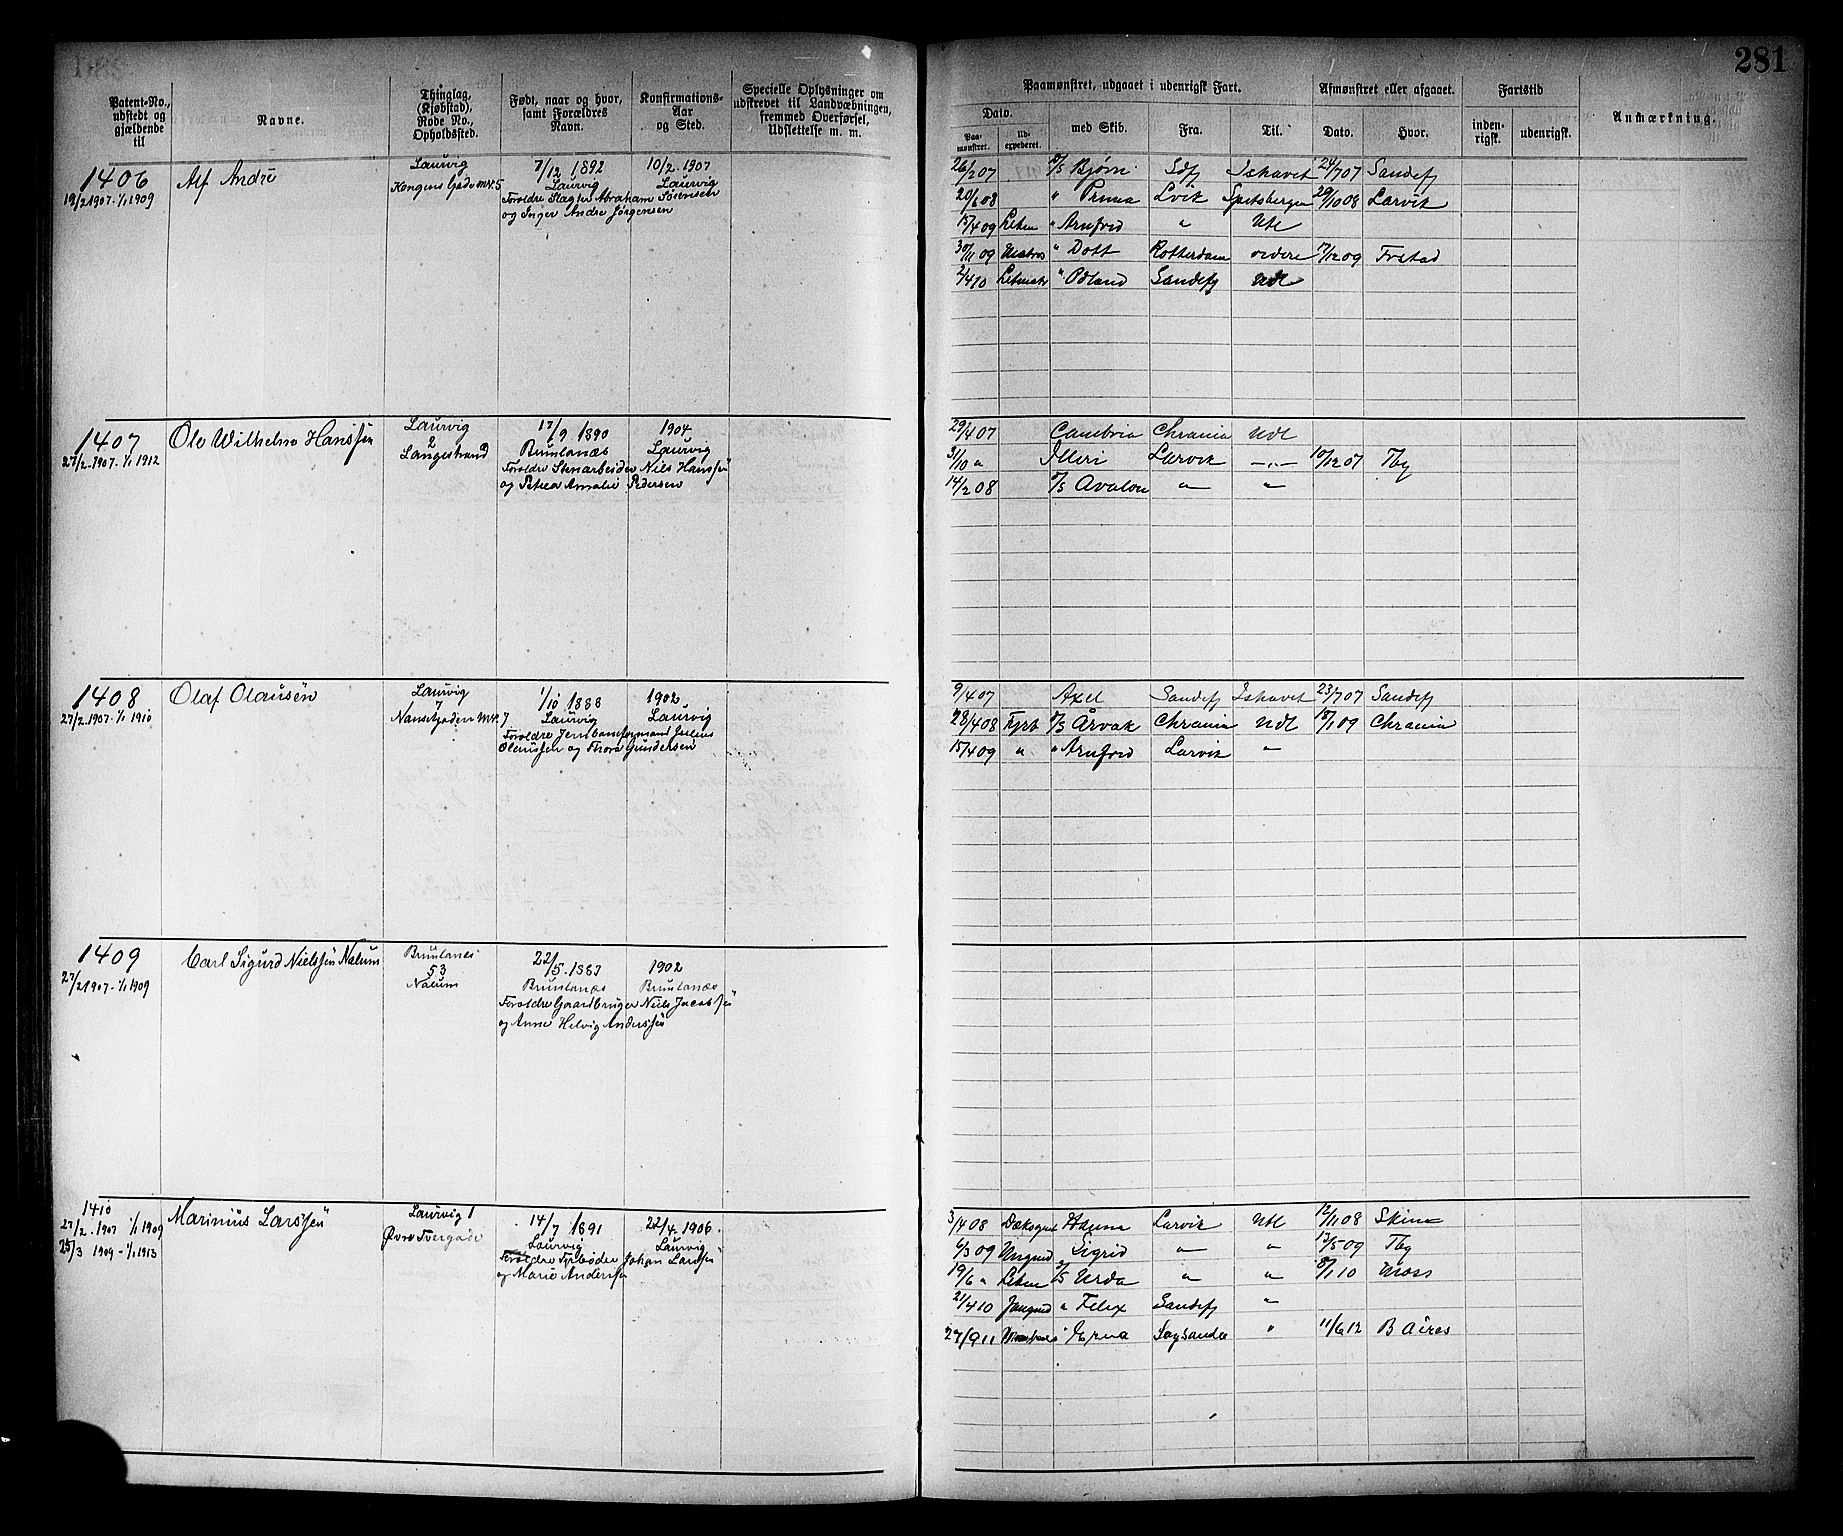 281
Patent-No., udstedt og gjældende til
Navne.
Thinglag, (Kjøbstad), Rode No., Opholdssted.
Født, naar og hvor, samt Forældres Navn.
Konfirmations-Aar og Sted.
Specielle Oplysninger om udskrevet til Landværnsøvningen, fremmed Overførsel, Udslettelse m. m.
Paamønstret, udgaaet i udenrigsk Fart.
Dato.
Paamønstret.
Udexpederet.
med Skib.
Fra.
Til.
Afmønstret eller afgaaet.
Dato.
Hvor.
Fartstid
indenrigsk.
udenrigsk.
Anmærkning.
1406
19/2 1907 - 1/1 1909
Alf André
Laurvig
Kongens Gade Nr. 5
7/12 1892
Laurvig
10/2 1907
Laurvig
Forældre Slagter Abraham Sörensen
og Inger Andre Jørgensen
26/2 07 S/S Bjørn Sdfj Ishavet 24/7 07 Sandefj
20/6 08 " Prima Lvik Spitsbergen 29/10 08 Larvik
15/4 09 " Arnfred " Udl
30/11 09 Matros " Dott Rotterdam videre 17/12 09 Frstad
2/4 10 Letmatr " Odland Sandefj Udl
1407
27/2 1907 - 1/1 1912
Ole Wilhelm Hanssen
Laurvig
2
Langestrand
17/9 1890
Brunlanæs
1904
Laurvig
Forældre Stenarbeider Niels Hanssen
og Petrea Amalie Pedersen
29/4 07 Cambria Chrania Udl
31/10 " Illeri Larvik — " — 10/12 07 Tbg
14/2 08 S/S Avalon " "
1408
27/2 1907 - 1/1 1910
Olaf Olausen
Laurvig
7
Nansetgaden Nr. 7
1/10 1888
Laurvig
1902
Laurvig
Forældre Jernbaneformand Julius
Olaussen og Thora Gundersen
9/4 07 Axel Sandefj Ishavet 23/7 07 Sandefj
28/4 08 Fyrb S/S Årvak Chrania Udl 18/1 09 Chrania
15/4 09 " " Arnfred Larvik "
1409
27/2 1907 - 1/1 1909
Carl Sigurd Nielssen Nalum
Brunlanes
53
Nalum
22/5 1883
Brunlanæs
1902
Brunlanæs
Forældre Gaardbruger Niels Jacobsen
og Anne Helvig Anderssen
1410
27/2 1907 1/1 1909
25/3 1909 - 1/1 1913
Marinius Larssen
Laurvig 1
Øvre Tvergade
14/7 1891
Laurvig
22/4 1906
Laurvig
Forældre Fyrbøder Johan Larssen
og Marie Anderssen
3/4 08 Dæksgut Larvik Udl 12/11 08 Skien
6/3 09 Ungmd Sigrid " " 13/5 09 Tbg
19/6 " S/S Urda " " 8/1 10 Moss
21/4 10 Jungmd " Felix Sandefj "
27/9 11 " Erna Sagsande " 11/6 12 B Aires